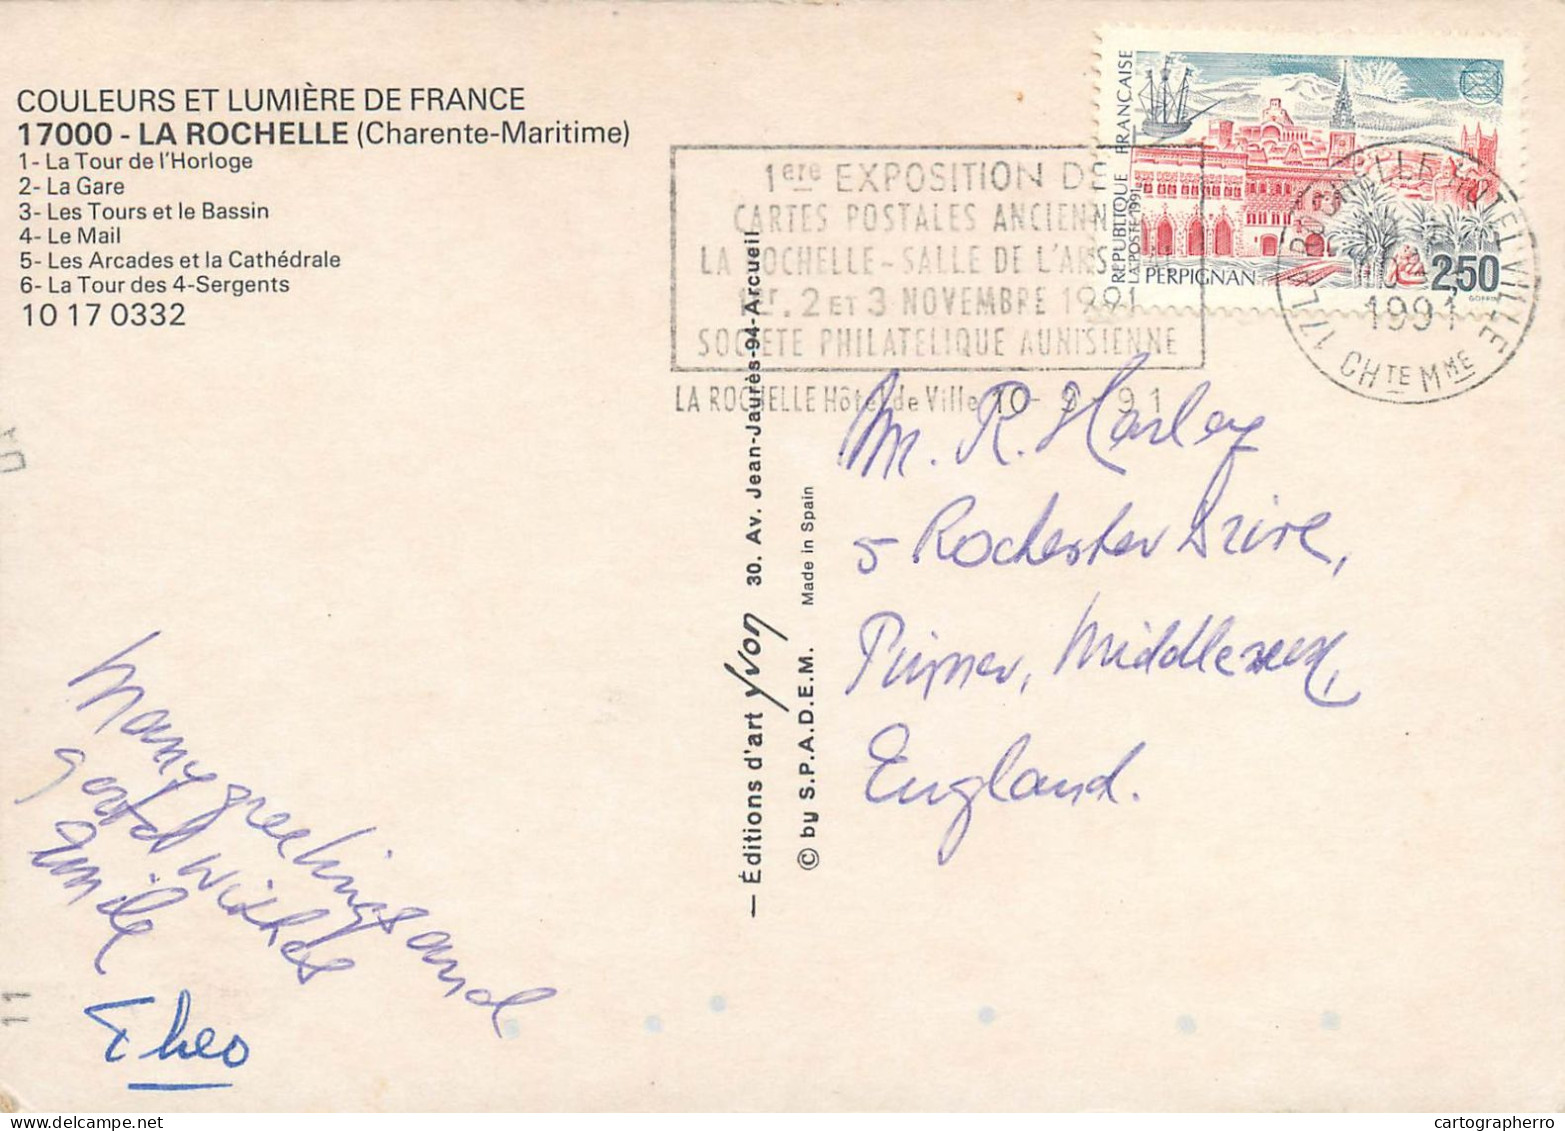 COULEURS ET LUMIÈRE DE FRANCE
17000 - LA ROCHELLE (Charente-Maritime)
1- La Tour de l'Horloge
2- La Gare
3- Les Tours et le Bassin
4- Le Mail
5- Les Arcades et la Cathédrale
6- La Tour des 4-Sergents
10 17 0332
1ere EXPOSITION DE
CARTES POSTALES ANCIENN
LA ROCHELLE - SALLE DE L'ARS
1er. 2 ET 3 NOVEMBRE 1991
SOCIETE PHILATELIQUE AUNISIENNE
LA ROCHELLE Hôtel de Ville 10- 9 - 91
REPUBLIQUE FRANÇAISE
LA POSTE 1991
PERPIGNAN
2,50
GOFFIN
17 LA ROCHELLE HOTEL VILLE
1991
CHTE MME
— Éditions d'art yvon 30. Av. Jean-Jaurès-94-Arcueil
© by S.P.A.D.E.M. Made in Spain
M. R. Harley
5 Rochester Drive,
Pinner, Middlesex,
England.
Many greetings and
good wishes
Emile
Theo
11
cartographerro